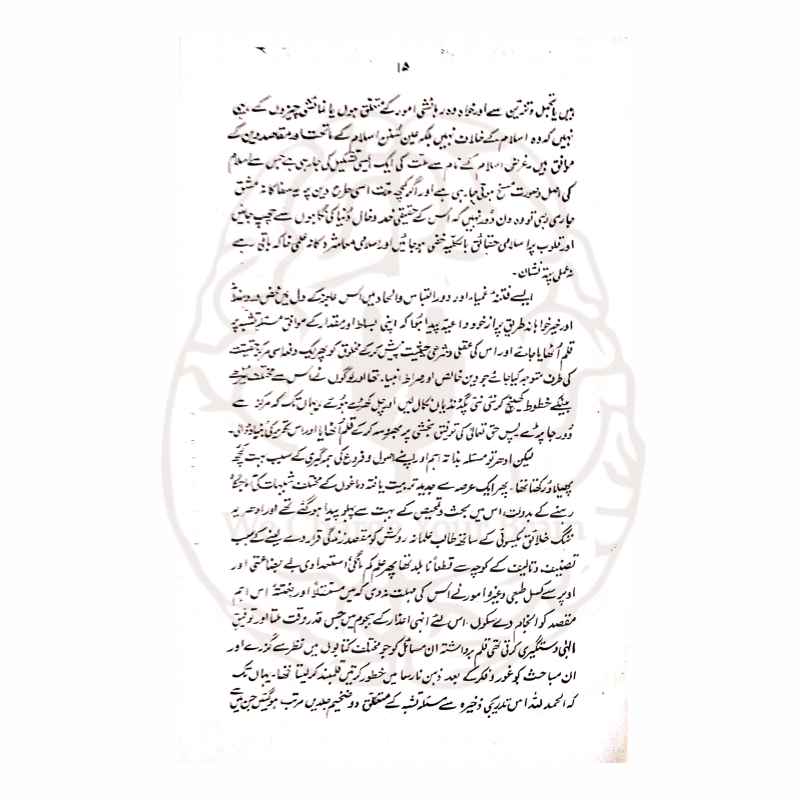 ۱۵
ہیں یا تجمل و تزئین سے اور خواہ وہ رہائشی امور کے متعلق ہوں یا نمائشی چیزوں کے ہیں
نہیں کہ وہ اسلام کے خلاف نہیں بلکہ عین سنن اسلام کے ماتحت اور مقاصد دین کے
موافق ہیں۔ غرض اسلام کے نام سے ملت کی ایک ایسی تشکیل کی جا رہی ہے جس سے اسلام
کی اصل صورت مسخ ہوتی جا رہی ہے اور اگر کچھ مدت اسی طرح دین پر یہ سفاکانہ مشق
جاری رہی تو وہ دن دُور نہیں کہ اُس کے حقیقی خد و خال دُنیا کی نگاہوں سے چھپ جائیں
اور قلوب پر اسلامی حقائق بالکلیہ مخفی ہو جائیں اور اسلامی معاشرہ کا نہ علمی خاکہ باقی رہے
نہ عملی پتہ نشان۔
ایسے فتنۂ عمیاء اور دور التباس و الحاد میں اس عاجز کے دل میں محض
اور خیر خواہانہ طریق پر از خود داعیہ پیدا ہوا کہ اپنی بساط اور مقدار کے موافق مسئلہ تشبہ پر
قلم اُٹھایا جائے اور اس کی عقلی و شرعی حیثیت پیش کر کے مخلوق کو پھر ایک دفعہ اسی مرکز حقیقت
کی طرف متوجہ کیا جائے جو دین خالص اور صراط انبیاء تھا اور لوگوں نے اس سے مختلف ٹیڑھے
بینگے خطوط کھینچ کر نئی نئی پگڈنڈیاں نکال لیں اور چل کھڑے ہوئے، یہاں تک کہ مرکز سے
دُور جا پڑے پس حق تعالیٰ کی توفیق بخشی پر بھروسہ کر کے قلم اُٹھایا اور اس تحریر کی بنیاد ڈالی۔
لیکن ادھر تو مسئلہ بذاتہ اہم اور اپنے اصول و فروع کی ہمہ گیری کے سبب بہت کچھ
پھیلاؤ رکھتا تھا۔ پھر ایک عرصہ سے جدید تربیت یافتہ دماغوں کے مختلف شبہات کی آماجگاہ
رہنے کے بدولت اس میں بحث و تمحیص کے بہت سے پہلو پیدا ہو گئے تھے اور ادھر یہ
ننگ خلائق یکسوئی کے ساتھ طالب علمانہ روش کو مقصد زندگی قرار دے لینے کے سبب
تصنیف و تالیف کے کوچہ سے قطعاً نابلد تھا پھر علم کم مائگی استعداد کی بے بضاعتی اور
اوپر سے کسل طبعی وغیرہ امور نے اس کی مہلت نہ دی کہ میں مستقلاً اور دفعۃً اس اہم
مقصد کو انجام دے سکوں۔ اس لئے انہی اعذار کے ہجوم میں جس قدر وقت ملتا اور توفیق
الٰہی دستگیری کرتی تھی قلم برداشتہ ان مسائل کو جو مختلف کتابوں میں نظر سے گزرے اور
ان مباحث کو غور و فکر کے بعد ذہن نارسا میں خطور کرتیں قلمبند کر لیتا تھا۔ یہاں تک
کہ الحمد للہ اس تدریجی ذخیرہ سے مسئلہ تشبہ کے متعلق دو ضخیم جلدیں مرتب ہو گئیں جن میں سے